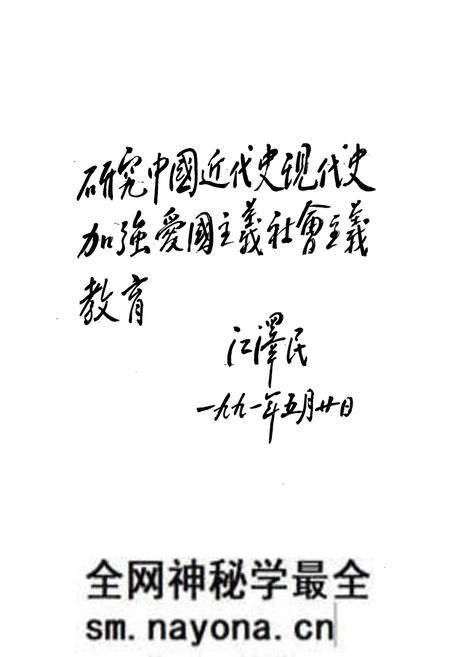 研究中國近代史現代史
加強愛國主義社會主義
教育
江澤民
一九九一年五月廿日
全网神秘学最全
sm.nayona.cn